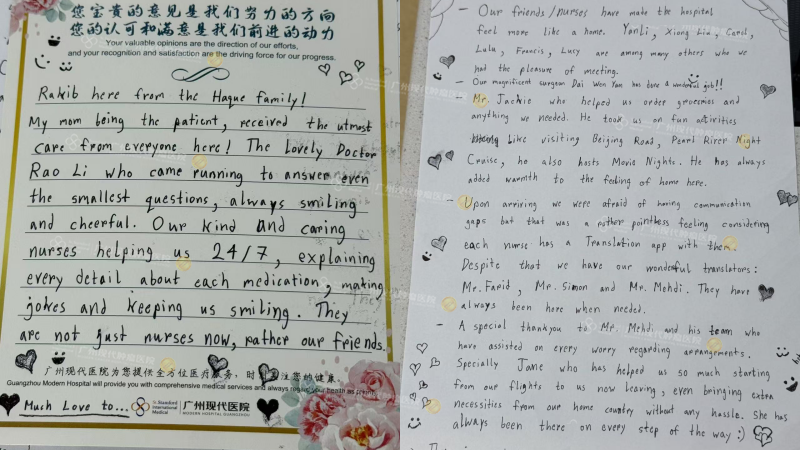 您宝贵的意见是我们努力的方向
您的认可和满意是我们前进的动力
Your valuable opinions are the direction of our efforts,
and your recognition and satisfaction are the driving force for our progress.
Rakib here from the Haque family!
My mom being the patient, received the utmost
care from everyone here! The Lovely Doctor
Rao Li who came running to answer even
the smallest questions, always smiling
and cheerful. Our kind and caring
nurses helping us 24/7, explaining
every detail about each medication, making
jokes and keeping us smiling. They
are not just nurses now, rather our friends.
广州现代医院为您提供全方位医疗服务，时刻关注您的健康
Guangzhou Modern Hospital will provide you with comprehensive medical services and always regard your health as
Much Love to...
St.Stamford
International
Medical
广州现代医院
MODERN HOSPITAL GUANGZHOU
- Our friends/nurses have made the hospital
feel more like a home. YanLi, Xiong Lia, Carol,
Lulu, Francis, Lucy are among many others who we
had the pleasure of meeting.
- Our magnificent surgeon Dai Wen Yan has done a wonderful job!!
- Mr. Jackie who helped us order groceries and
anything we needed. He took us on fun activities
like visiting Beijing Road, Pearl River Night
Cruise, he also hosts Movie Nights. He has always
added warmth to the feeling of home here.
- Upon arriving we were afraid of having communication
gaps but that was a rather pointless feeling considering
each nurse has a Translation app with them.
Despite that we have our wonderful translators:
Mr. Farid, Mr. Simon and Mr. Mehdi. They have
always been here when needed.
- A special thankyou to Mr. Mehdi and his team who
have assisted on every worry regarding arrangements.
Specially Jane who has helped us so much starting
from our flights to us now leaving, even bringing extra
necessities from our home country without any hassle. She has
always been there on every step of the way :)